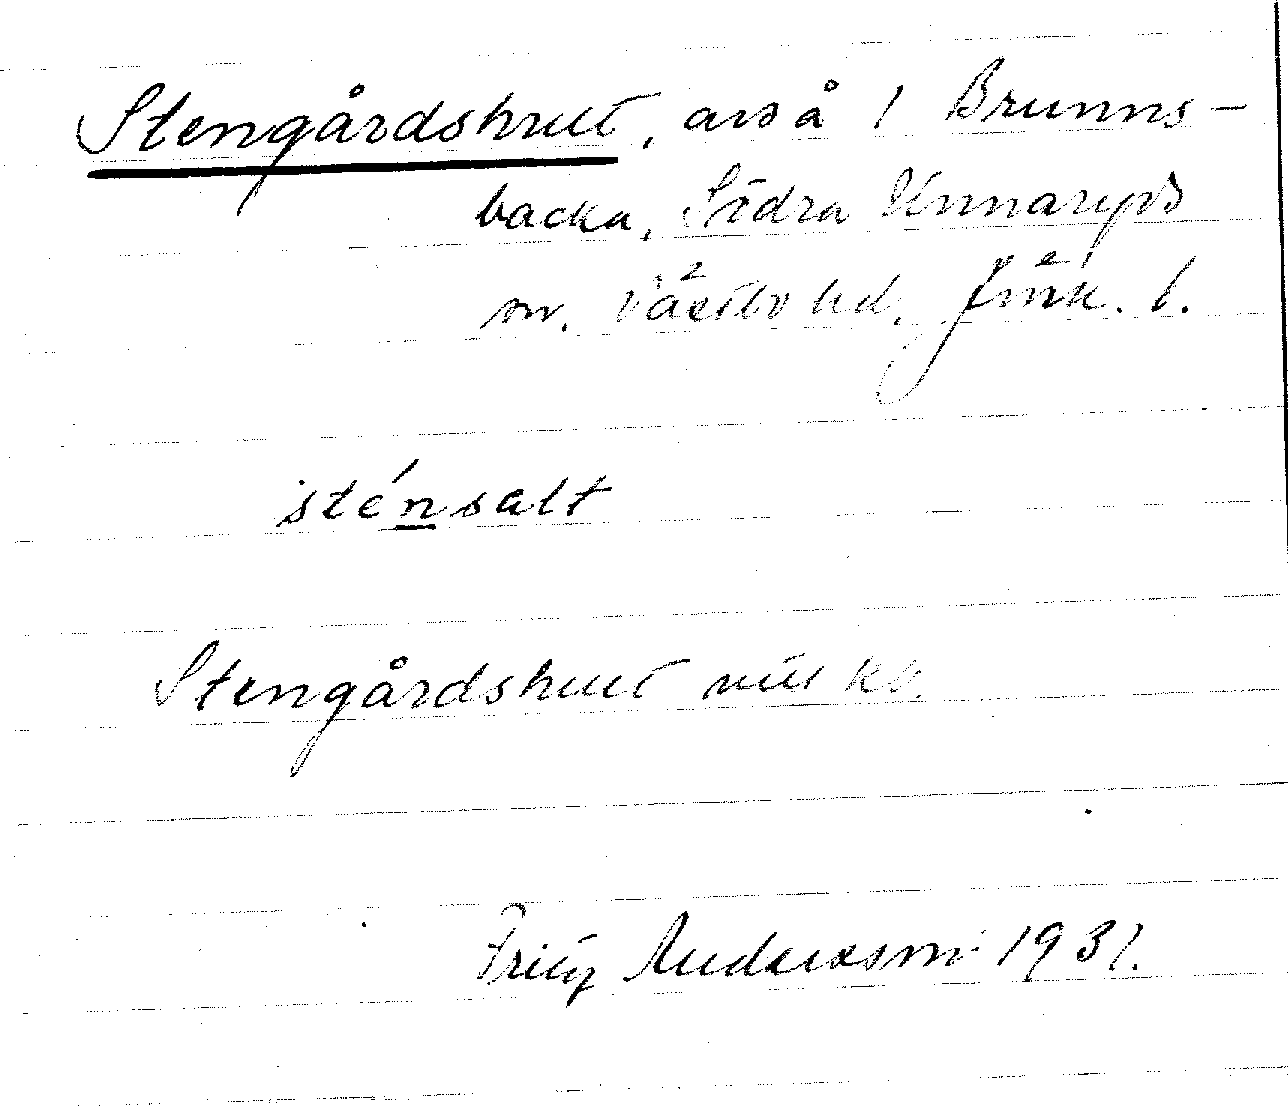 Stengårdshult, avs å 1 Brunns-
backa, Södra Unnaryds
sn. Västbo hd. Jönk. l.
sténsalt
Stengårdshult
Fritz Andersson 1931.